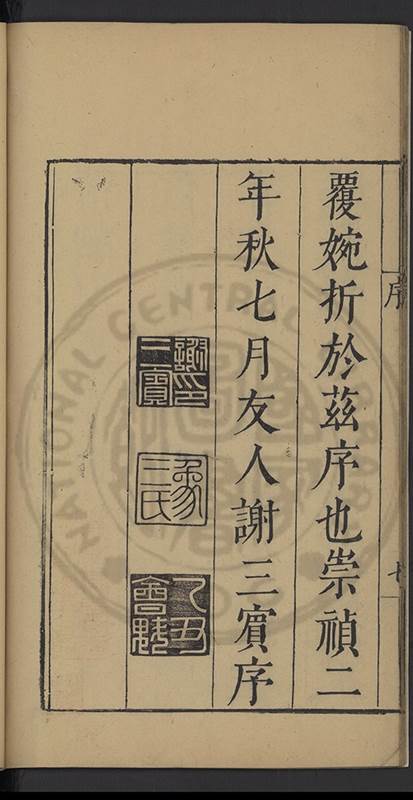 序
七
覆婉折於茲序也崇禎二
年秋七月友人謝三賓序
謝三賓印
象三氏
乙丑會魁
NATIONAL CENTRAL